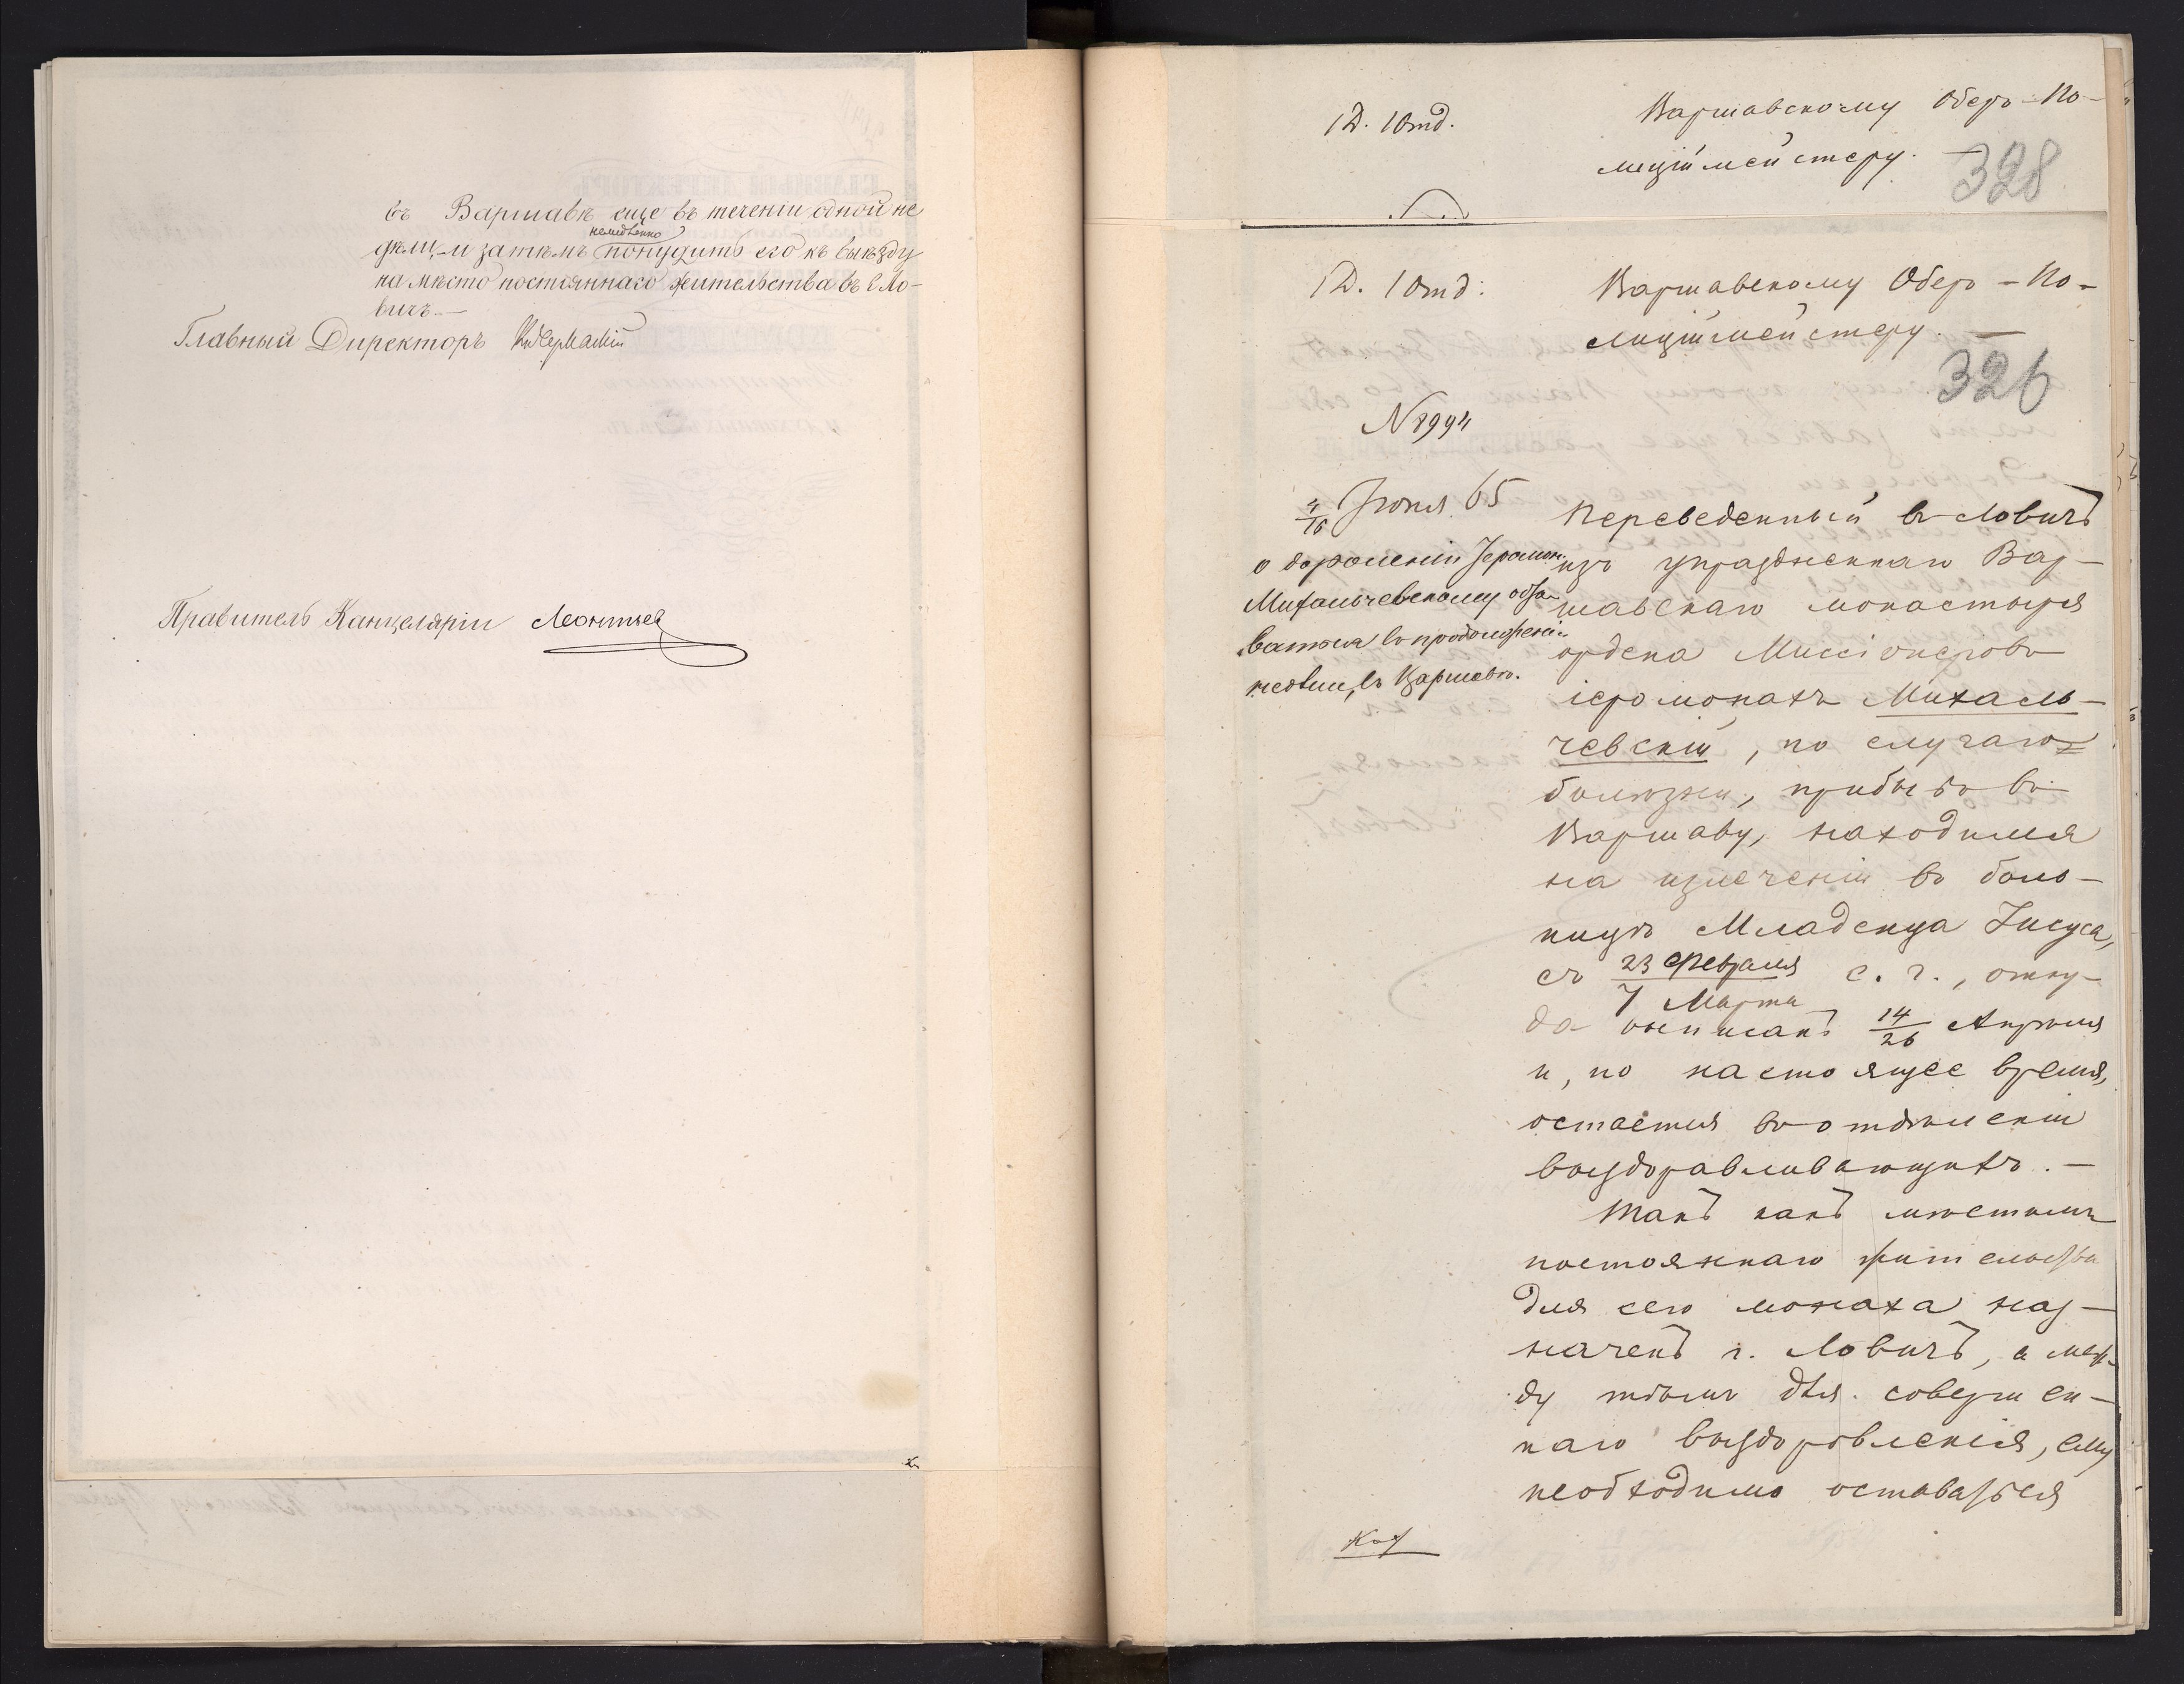 въ Варшавѣ еще въ теченіи одной не
дѣли, и затѣмъ немедлѣнно понудить его къ выѣзду
на мѣсто постояннаго жительства въ г. Ло-
вичъ.—
Главный Директоръ
Правитель Канцеляріи Леонтьев
1 Д. 1 Отд.
Варшавскому Оберъ-По-
лиціймейстеру.
328
1 Д. 1 Отд.
Варшавскому Оберъ-По-
лиціймейстеру. —
326
N 8994
4/16 Іюня 65
о дозволеніи Іеромон.
Михальчевскому оста-
ваться въ продолженіи
недѣли, въ Варшавѣ.
Переведенный въ Ловичъ
изъ упраздненнаго Вар-
шавскаго монастыря
ордена Миссіонеровъ
іеромонахъ Михаль-
чевскій, по случаю
болѣзни, прибывъ въ
Варшаву, находился
на излеченіи въ боль-
ницѣ Младенца Іисуса,
съ 23 Февраля / 7 Марта с. г., отку-
да выписанъ 14/26 Апрѣля
и, по настоящее время,
остается въ отдѣленіи
выздоравливающихъ. —
Такъ какъ мѣстомъ
постояннаго жительства
для сего монаха наз-
наченъ г. Ловичъ, а меж-
ду тѣмъ для совершен-
наго выздоровленія, ему
необходимо оставаться